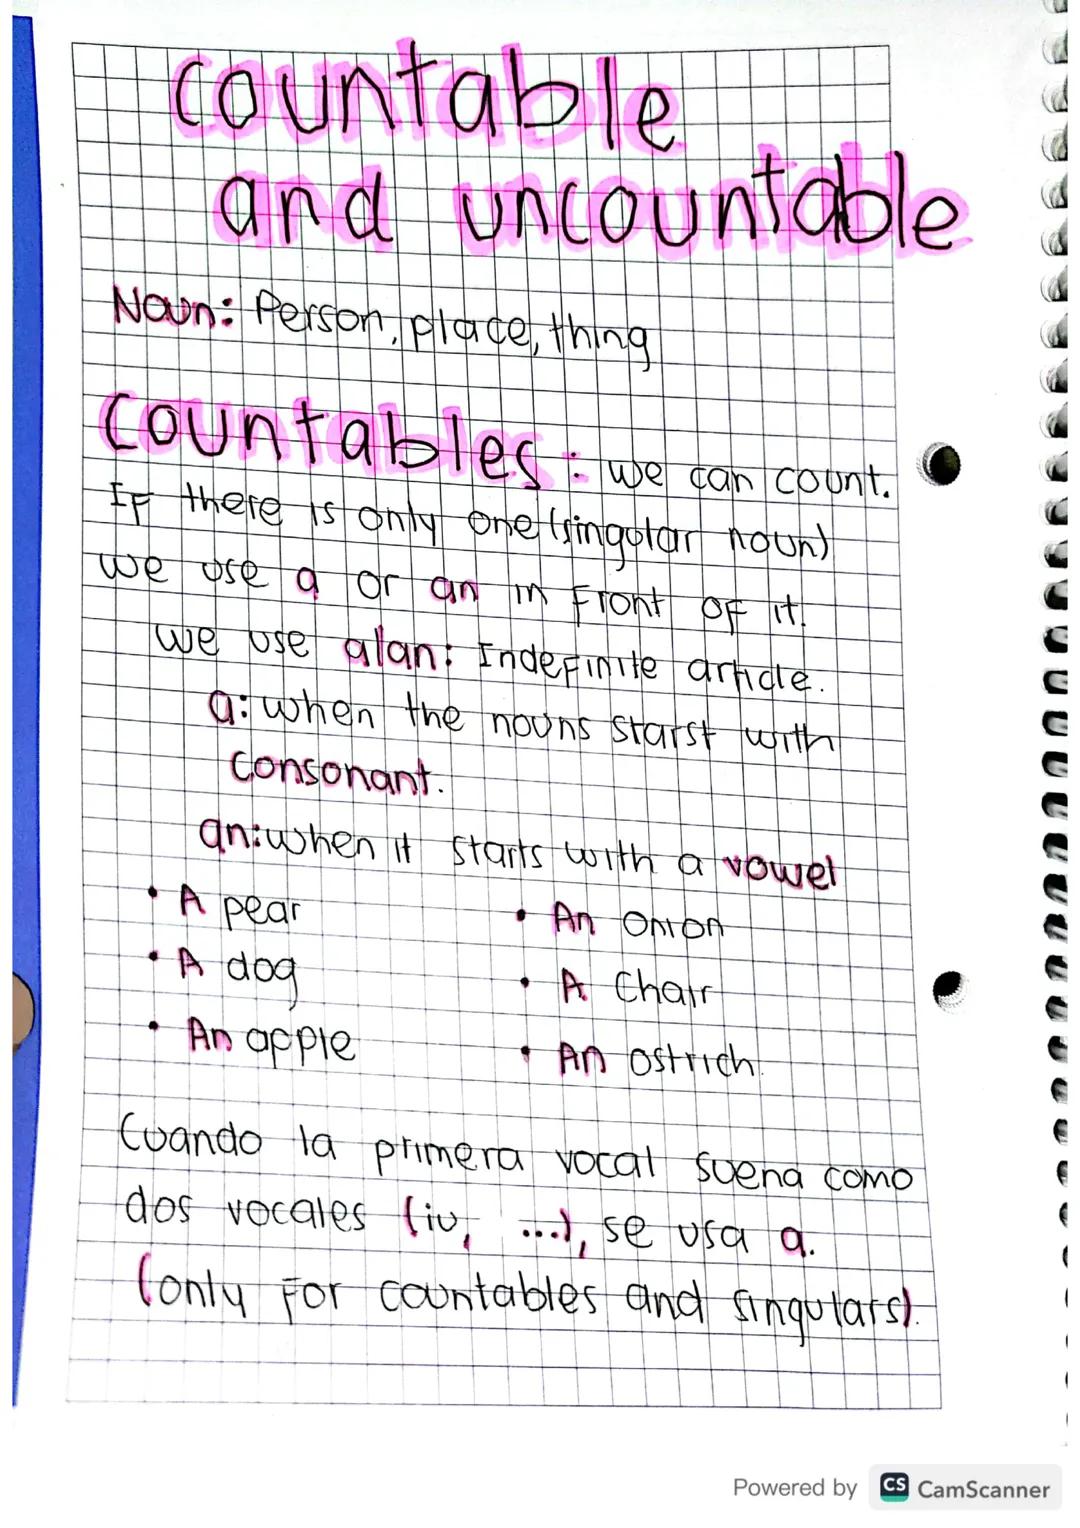 Countable
and uncountable
Noun: Person, place, thing
Countables: we can count.
If there is only one (singular noun)
we use a or an in front of it.
we use a/an: Indefinite article.
a: when the nouns starst with
consonant.
an: when it starts with a vowel
• A pear
• An onion
• A dog
• A chair
• An apple
• An ostrich.
Cuando la primera vocal suena como
dos vocales (iu, ...), se usa a.
(only for countables and singulars).
Powered by CS CamScanner